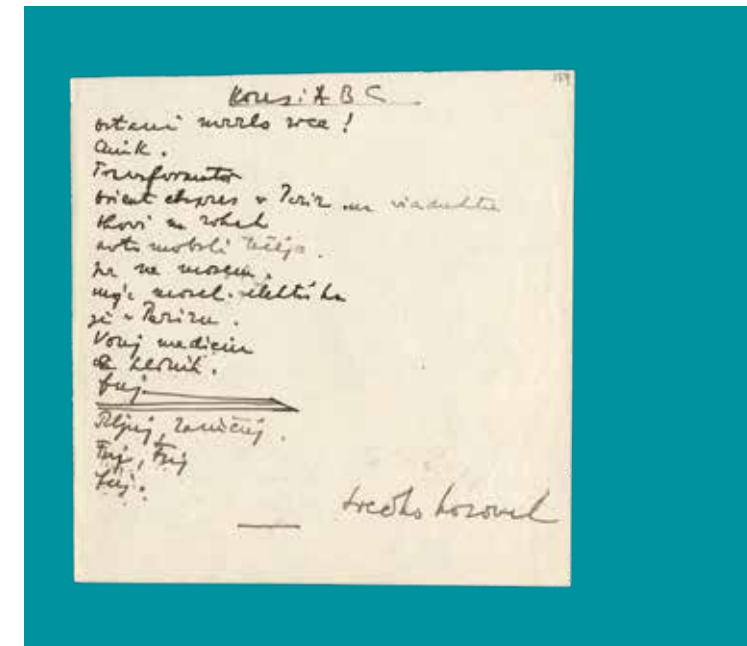 Kons: A B C
ostani mrzlo srce!
Cinik.
Transformator
orient ekspres v Pariz na viaduktu
okovi na rokah
avtomobili
jaz ne morem.
misel - elektrika
je v Parizu.
Vonj medicin
klinik.
fuj
Pljuj, zaničuj.
Fuj, Fuj
fuj.
Srečko Kosovel